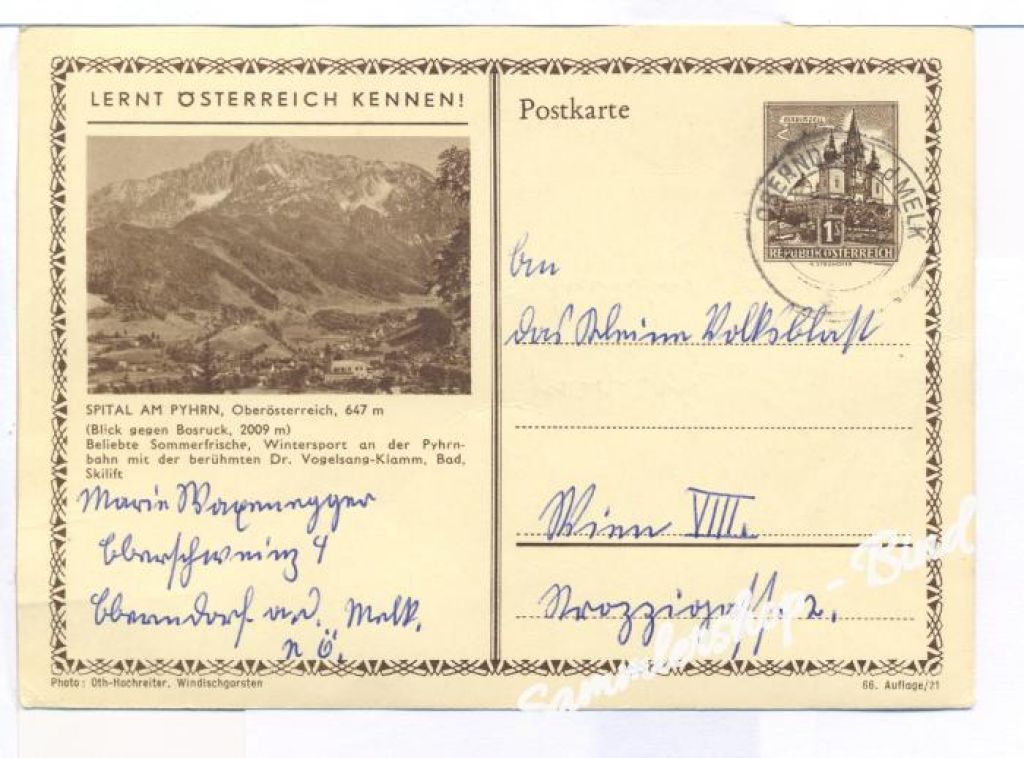 LERNT ÖSTERREICH KENNEN!
SPITAL AM PYHRN, Oberösterreich, 647 m
(Blick gegen Bosruck, 2009 m)
Beliebte Sommerfrische, Wintersport an der Pyhrn-
bahn mit der berühmten Dr. Vogelsang-Klamm, Bad,
Skilift
Marie Waxenegger
Oberschweinz 4
Oberndorf a. d. Melk.
N Ö.
Photo: Oth-Hochreiter, Windischgarsten
Postkarte
MARIAZELL
1S
REPUBLIK ÖSTERREICH
OBERNDORF A D MELK
An
das Kleine Volksblatt
Wien VIII.
Strozzigasse 2.
66. Auflage/21
Sammlershop - Bind